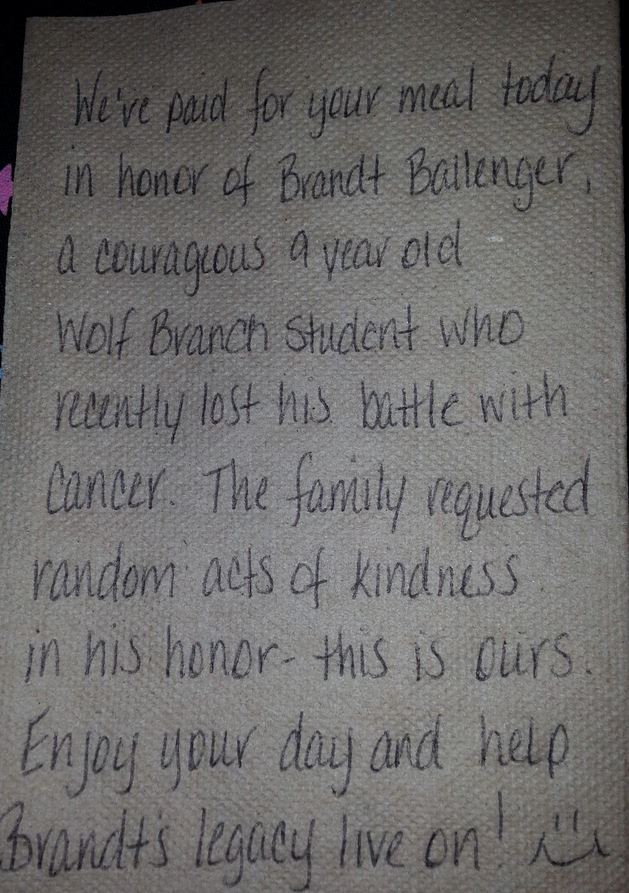 We've paid for your meal today
in honor of Brandt Ballenger,
a couragious 9 year old
Wolf Branch student who
recently lost his battle with
Cancer. The family requested
random acts of kindness
in his honor- this is ours.
Enjoy your day and help
Brandt's legacy live on!